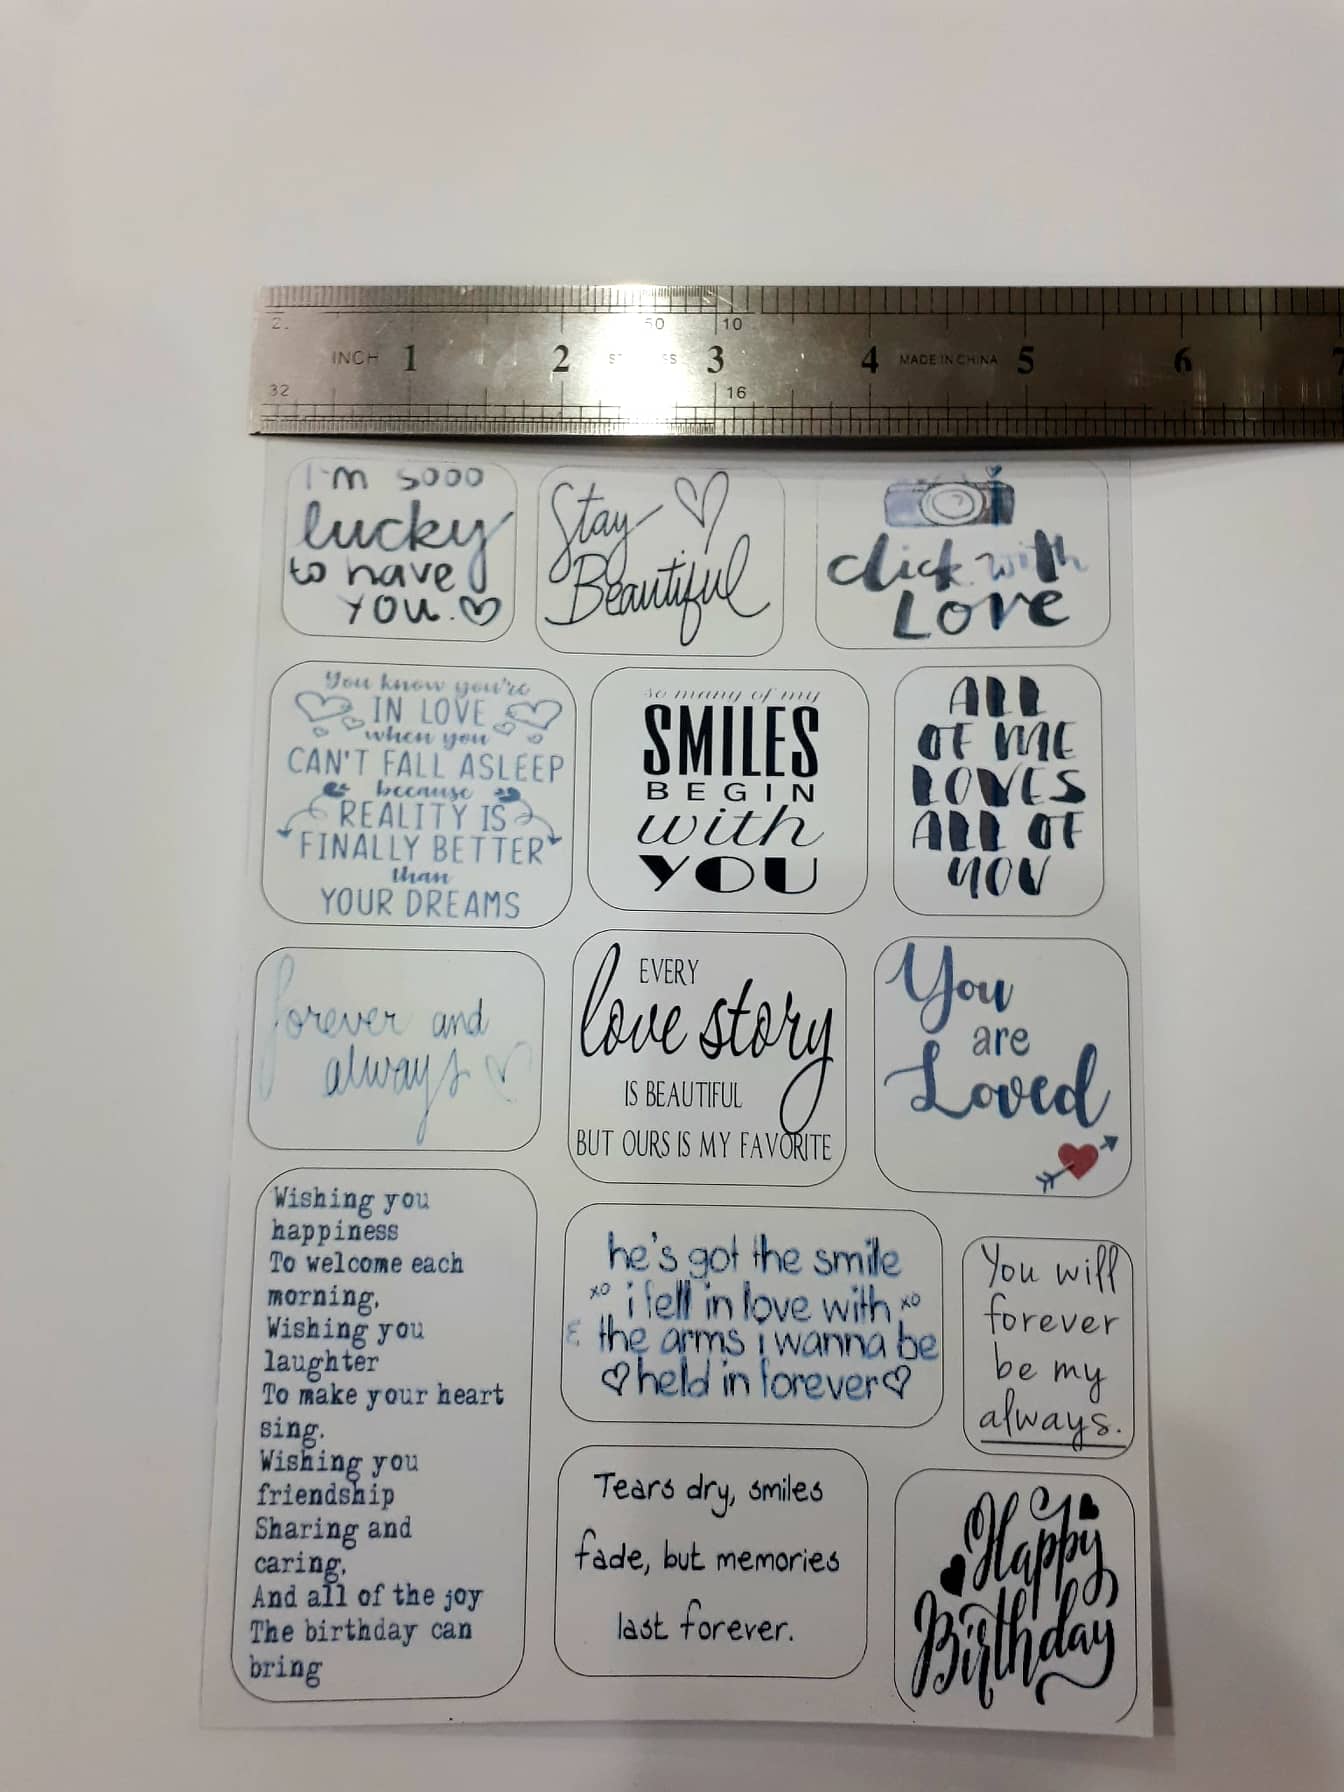 2.
50
10
INCH 1 2 3 4 MADE IN CHINA 5 6 7
32
16
I'm sooo
lucky
to have
you.
Stay
Beautiful
click with
LOVE
You know you're
IN LOVE
when you
CAN'T FALL ASLEEP
because
REALITY IS
FINALLY BETTER
than
YOUR DREAMS
so many of my
SMILES
BEGIN
with
YOU
ALL
OF ME
LOVES
ALL OF
YOU
forever and
always
EVERY
love story
IS BEAUTIFUL
BUT OURS IS MY FAVORITE
You
are
Loved
Wishing you
happiness
To welcome each
morning,
Wishing you
laughter
To make your heart
sing.
Wishing you
friendship
Sharing and
caring,
And all of the joy
The birthday can
bring
he's got the smile
xo i fell in love with xo
& the arms i wanna be
held in forever
You will
forever
be my
always.
Tears dry, smiles
fade, but memories
last forever.
Happy
Birthday